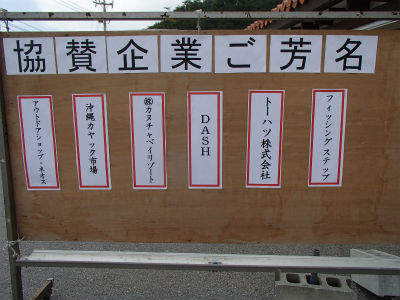 協賛企業ご芳名
フィッシング ステップ
トーハツ株式会社
DASH
㈱カヌチャベイリゾート
沖縄カヤック市場
アウトドアショップ・ネオス